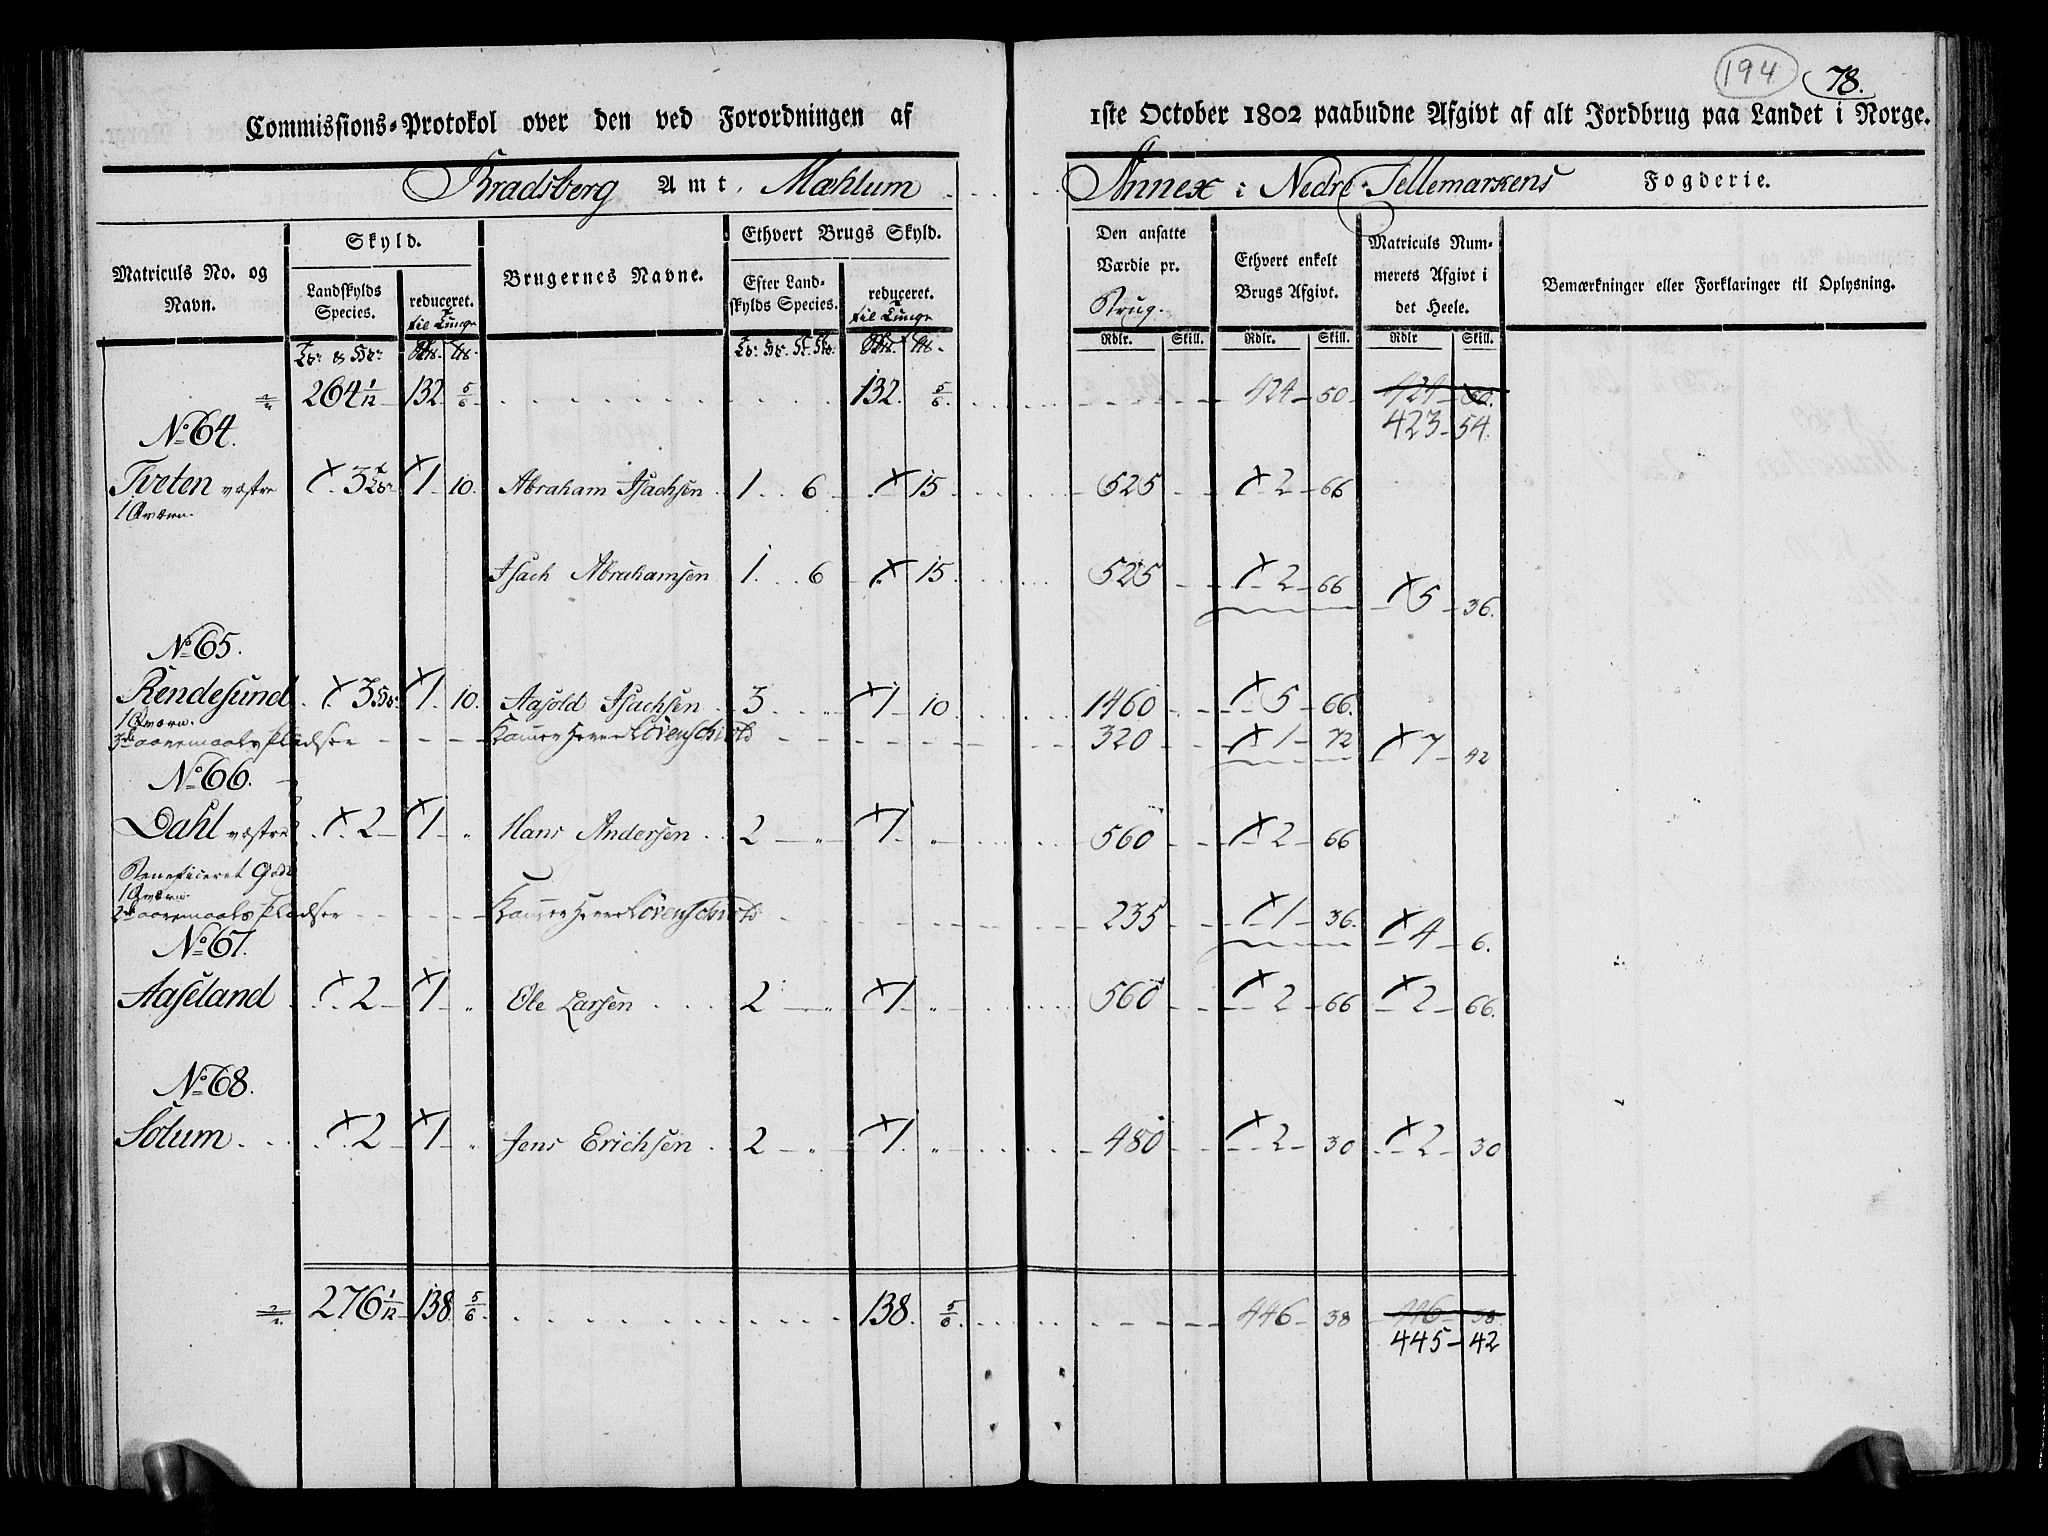 194 78.
Commissions-Protokol over den ved Forordningen af 1ste October 1802 paabudne Afgivt af alt Jordbrug paa Landet i Norge.
Bradsberg Amt, Mæhlum Annex i Nedre Tellemarkens Fogderie.
Matriculs No. og Navn. Skyld. Brugernes Navne. Ethvert Brugs Skyld. Den ansatte Værdie pr. Brug. Ethvert enkelt Brugs Afgivt. Matriculs Nummerets Afgivt i det Heele. Bemærkninger eller Forklaringer til Oplysning.
Landskylds Species. reduceret. til Tunge Efter Landskylds Species. reduceret. til Tunge
Rdlr. Skill. Rdlr. Skill. Rdlr Skill.
264 1/12 132 5/6 132. 5/6. 424 50 424 50.
423 54.
No 64.
Tveten vestre 3 1 10. Abraham Isachsen 1 6 15 525 2 66
1 Qværn.
Isach Abrahamsen 1 6 15. 525 2 66 5 36.
No 65.
Rendesund 3 1 10. Aasold Isachsen 3 1 10 1460 5 66.
1 Qværn.
3de aaremaals Pladser Løvenschiold 320 1 72 7 42
No 66.
Dahl vestre 2 1 " Hans Andersen 2 " 1 " 560 2 66
Beneficeret Gods
1 Qværn
2de aaremaals Pladser Løvenschiold 235 1 36. 4 6.
No 67.
Aaseland 2 1 " Ole Larsen 2 " 1 " 560 2 66 2 66.
No 68.
Solum 2 1 " Jens Erichsen 2 " 1 " 480 2 30 2 30
276 1/12 138 5/6 138. 5/6. 446 38 446 38.
445 42